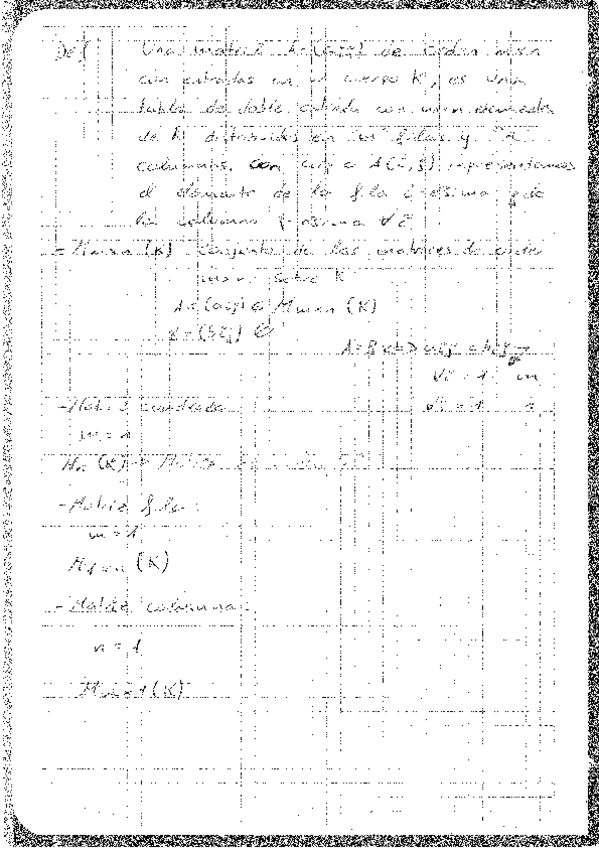 Def Una matriz A=(aij) de orden mxn
con entradas en un cuerpo K, es una
tabla de doble entrada con m·n elementos
de K distribuidos en las filas y n
columnas, con aij o A(i,j) representamos
el elemento de la fila i-ésima y de
la columna j-ésima ∀i
- Mmxn (K) Conjunto de las matrices de orden
mxn sobre K
A=(aij) ∈ Mmxn (K)
B=(bij) ∈
A=B <=> aij = bij
∀i = 1 m
∀j = 1 n
- Matriz cuadrada
m = n
Mn (K) → Matriz
- Matriz fila:
m = 1
M1xn (K)
- Matriz columna:
n = 1
Mmx1 (K)